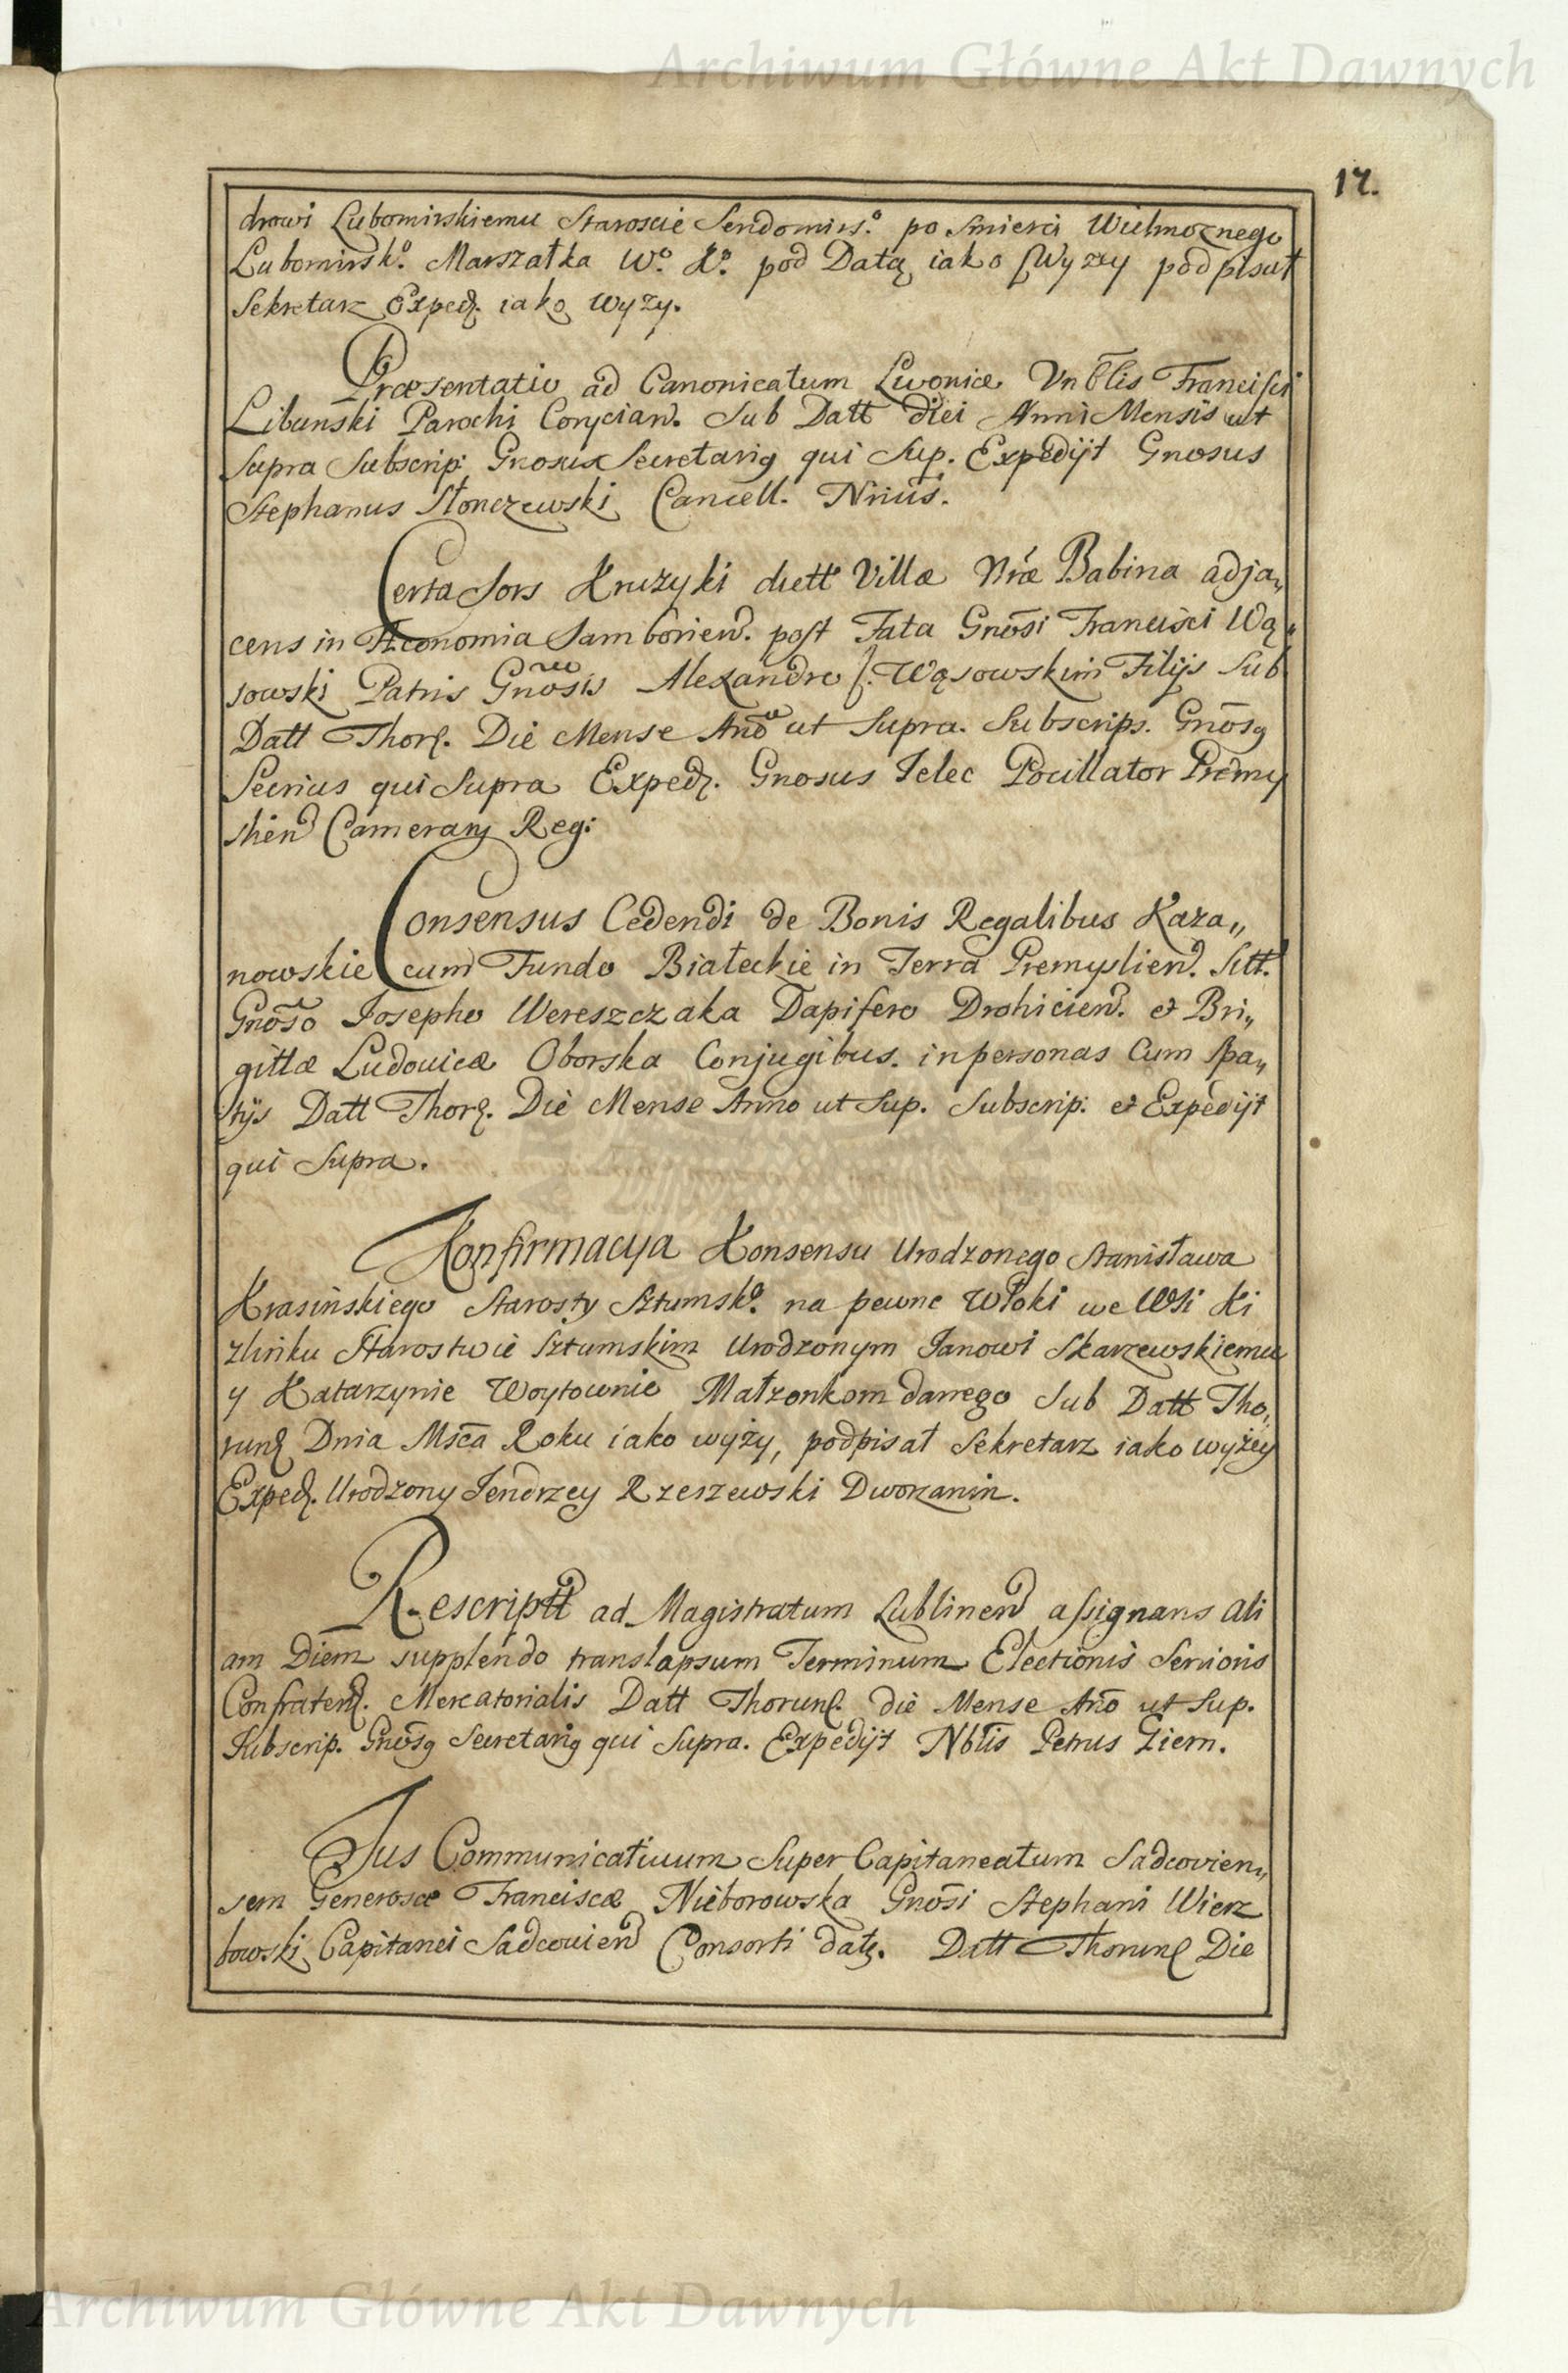 Archiwum Główne Akt Dawnych
17.
drowi Lubomirskiemu Staroscie Sendomirs.o po Smierci Wielmoznego
Lubomirsk.o Marszałka W.o K.o pod Datą iako Wyzzy podpisał
Sekretarz Exped. iako wyzy.
Præsentatio ad Canonicatum Livoniæ Vnblis Francisci
Libański Parochi Corycian. Sub Datt diei Anni Mensis ut
Supra Subscrip: Gnosus Secretarig qui Sup. Expedijt Gnosus
Stephanus Słonczewski Cancell. Nrius.
Certa Sors Kruzyki dictt Villæ Nræ Babina adja„
cens in Æconomia Samborien. post Fata Gnosi Francisci Wą„
sowski Patris Gnosis Alexandro f. Wąsowskim Filijs Sub
Datt Thor. Die Mense Ano ut Supra. Subscrips. Gnosg
Secrius qui Supra Exped. Gnosus Jelec Pocillator Premy
slien Camerarg Reg:
Consensus Cedendi de Bonis Regalibus Kaza„
nowskie cum Fundo Białeckie in Terra Premyslien. Sitt.
Gnoso Josepho Wereszczaka Dapifero Drohicien. et Bri„
gittæ Ludovicæ Oborska Conjugibus. in personas Cum Spa„
tijs Datt Thor. Die Mense Anno ut Sup. Subscrip: et Expedijt
qui Supra.
Konfirmacya Konsensu Urodzonego Stanisława
Krasińskiego Starosty Sztumsk.o na pewne Włoki we Wsi Ki
zlinku Starostwie Sztumskim Urodzonym Janowi Skarzewskiemu
y Katarzynie Woytownie Małzonkom danego Sub Datt Tho„
run Dnia Msca Roku iako wyży, podpisał Sekretarz iako wyżey
Exped. Urodzony Jendrzey Rzeszewski Dworzanin.
Rescriptt ad Magistratum Lublinen assignans ali
am Diem supplendo translapsum Terminum Electionis Senioris
Confratern. Mercatorialis Datt Thorun. die Mense Ano ut Sup.
Subscrip. Gnosg Secretarig qui Supra. Expedijt Nblis Petrus Ziem.
Jus Communicativum Super Capitaneatum Sadcovien„
sem Generosæ Franciscæ Nieborowska Gnosi Stephani Wierz
bowski Capitanei Sadcovien Consorti dat. Datt Thorun Die
Archiwum Główne Akt Dawnych